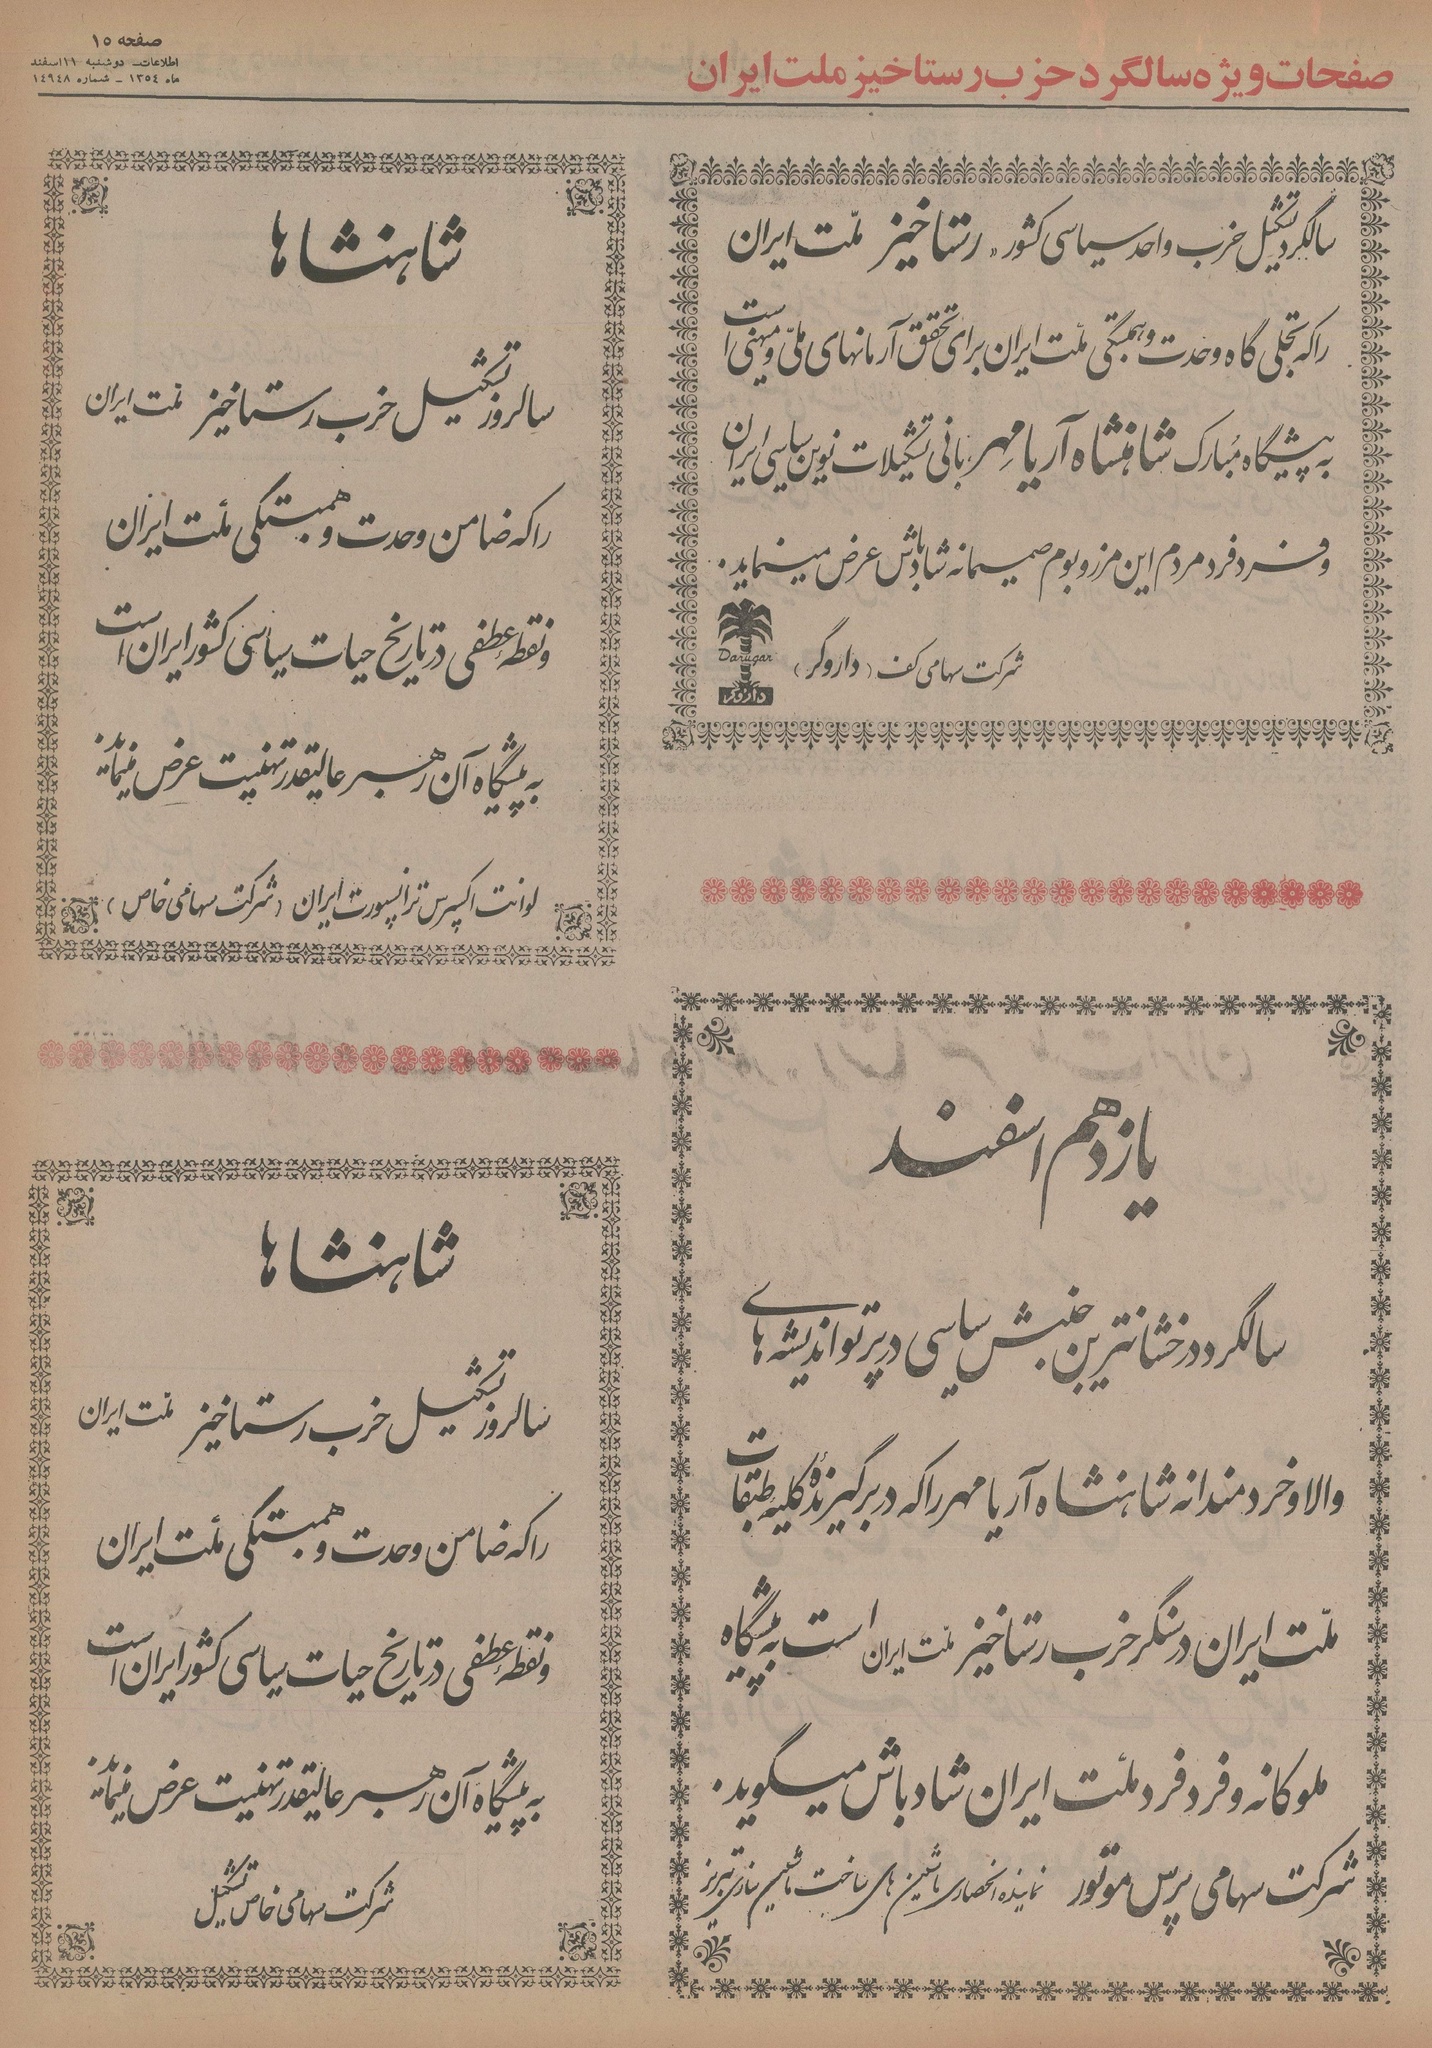 صفحات ویژه سالگرد حزب رستاخیز ملت ایران
صفحه ۱۵
اطلاعات ـ دوشنبه ۱۱ اسفند
ماه ۱۳۵۴ ـ شماره ۱۴۹۴۸
سالگرد تشکیل حزب واحد سیاسی کشور «رستاخیز ملّت ایران
را که تجلی گاه وحدت و همبستگی ملّت ایران برای تحقق آرمانهای ملّی و میهنی است
به پیشگاه مُبارک شاهنشاه آریامهر بانی تشکیلات نوین سیاسی ایران
و فرد فرد مردم این مرز و بوم صمیمانه شادباش عرض مینماید.
شرکت سهامی کف (داروگر)
Darugar
داروگر
یازدهم اسفند
سالگرد درخشانترین جنبش سیاسی در پرتو اندیشه های
والا و خردمندانه شاهنشاه آریامهر را که در برگیرندهٔ کلیه طبقات
ملّت ایران در سنگر حزب رستاخیز ملّت ایران است به پیشگاه
ملوکانه و فرد فرد ملّت ایران شادباش میگوید.
شرکت سهامی پرس موتور نماینده انحصاری ماشین های ساخت ماشین سازی تبریز
شاهنشاها
سالروز تشکیل حزب رستاخیز ملت ایران
را که ضامن وحدت و همبستگی ملّت ایران
و نقطه عطفی در تاریخ حیات سیاسی کشور ایران است
به پیشگاه آن رهبر عالیقدر تهنیت عرض مینماید.
لوانت اکسپرس ترانسپورت ایران (شرکت سهامی خاص)
شاهنشاها
سالروز تشکیل حزب رستاخیز ملت ایران
را که ضامن وحدت و همبستگی ملّت ایران
و نقطه عطفی در تاریخ حیات سیاسی کشور ایران است
به پیشگاه آن رهبر عالیقدر تهنیت عرض مینماید.
شرکت سهامی خاص تشکیل